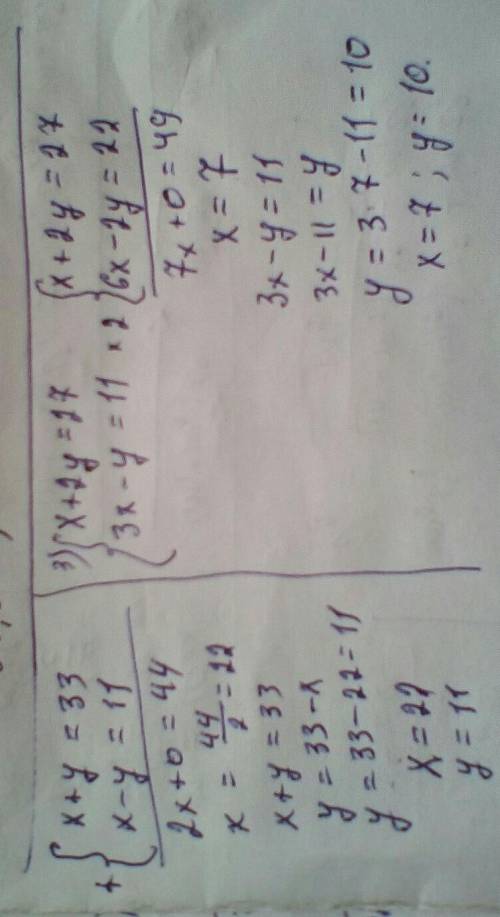 + { x + y = 33
{ x - y = 11
2x + 0 = 44
x = 44/2 = 22
x + y = 33
y = 33 - x
y = 33 - 22 = 11
x = 22
y = 11
3) { x + 2y = 27
{ 3x - y = 11 × 2
{ x + 2y = 27
{ 6x - 2y = 22
7x + 0 = 49
x = 7
3x - y = 11
3x - 11 = y
y = 3·7 - 11 = 10
x = 7 ; y = 10.